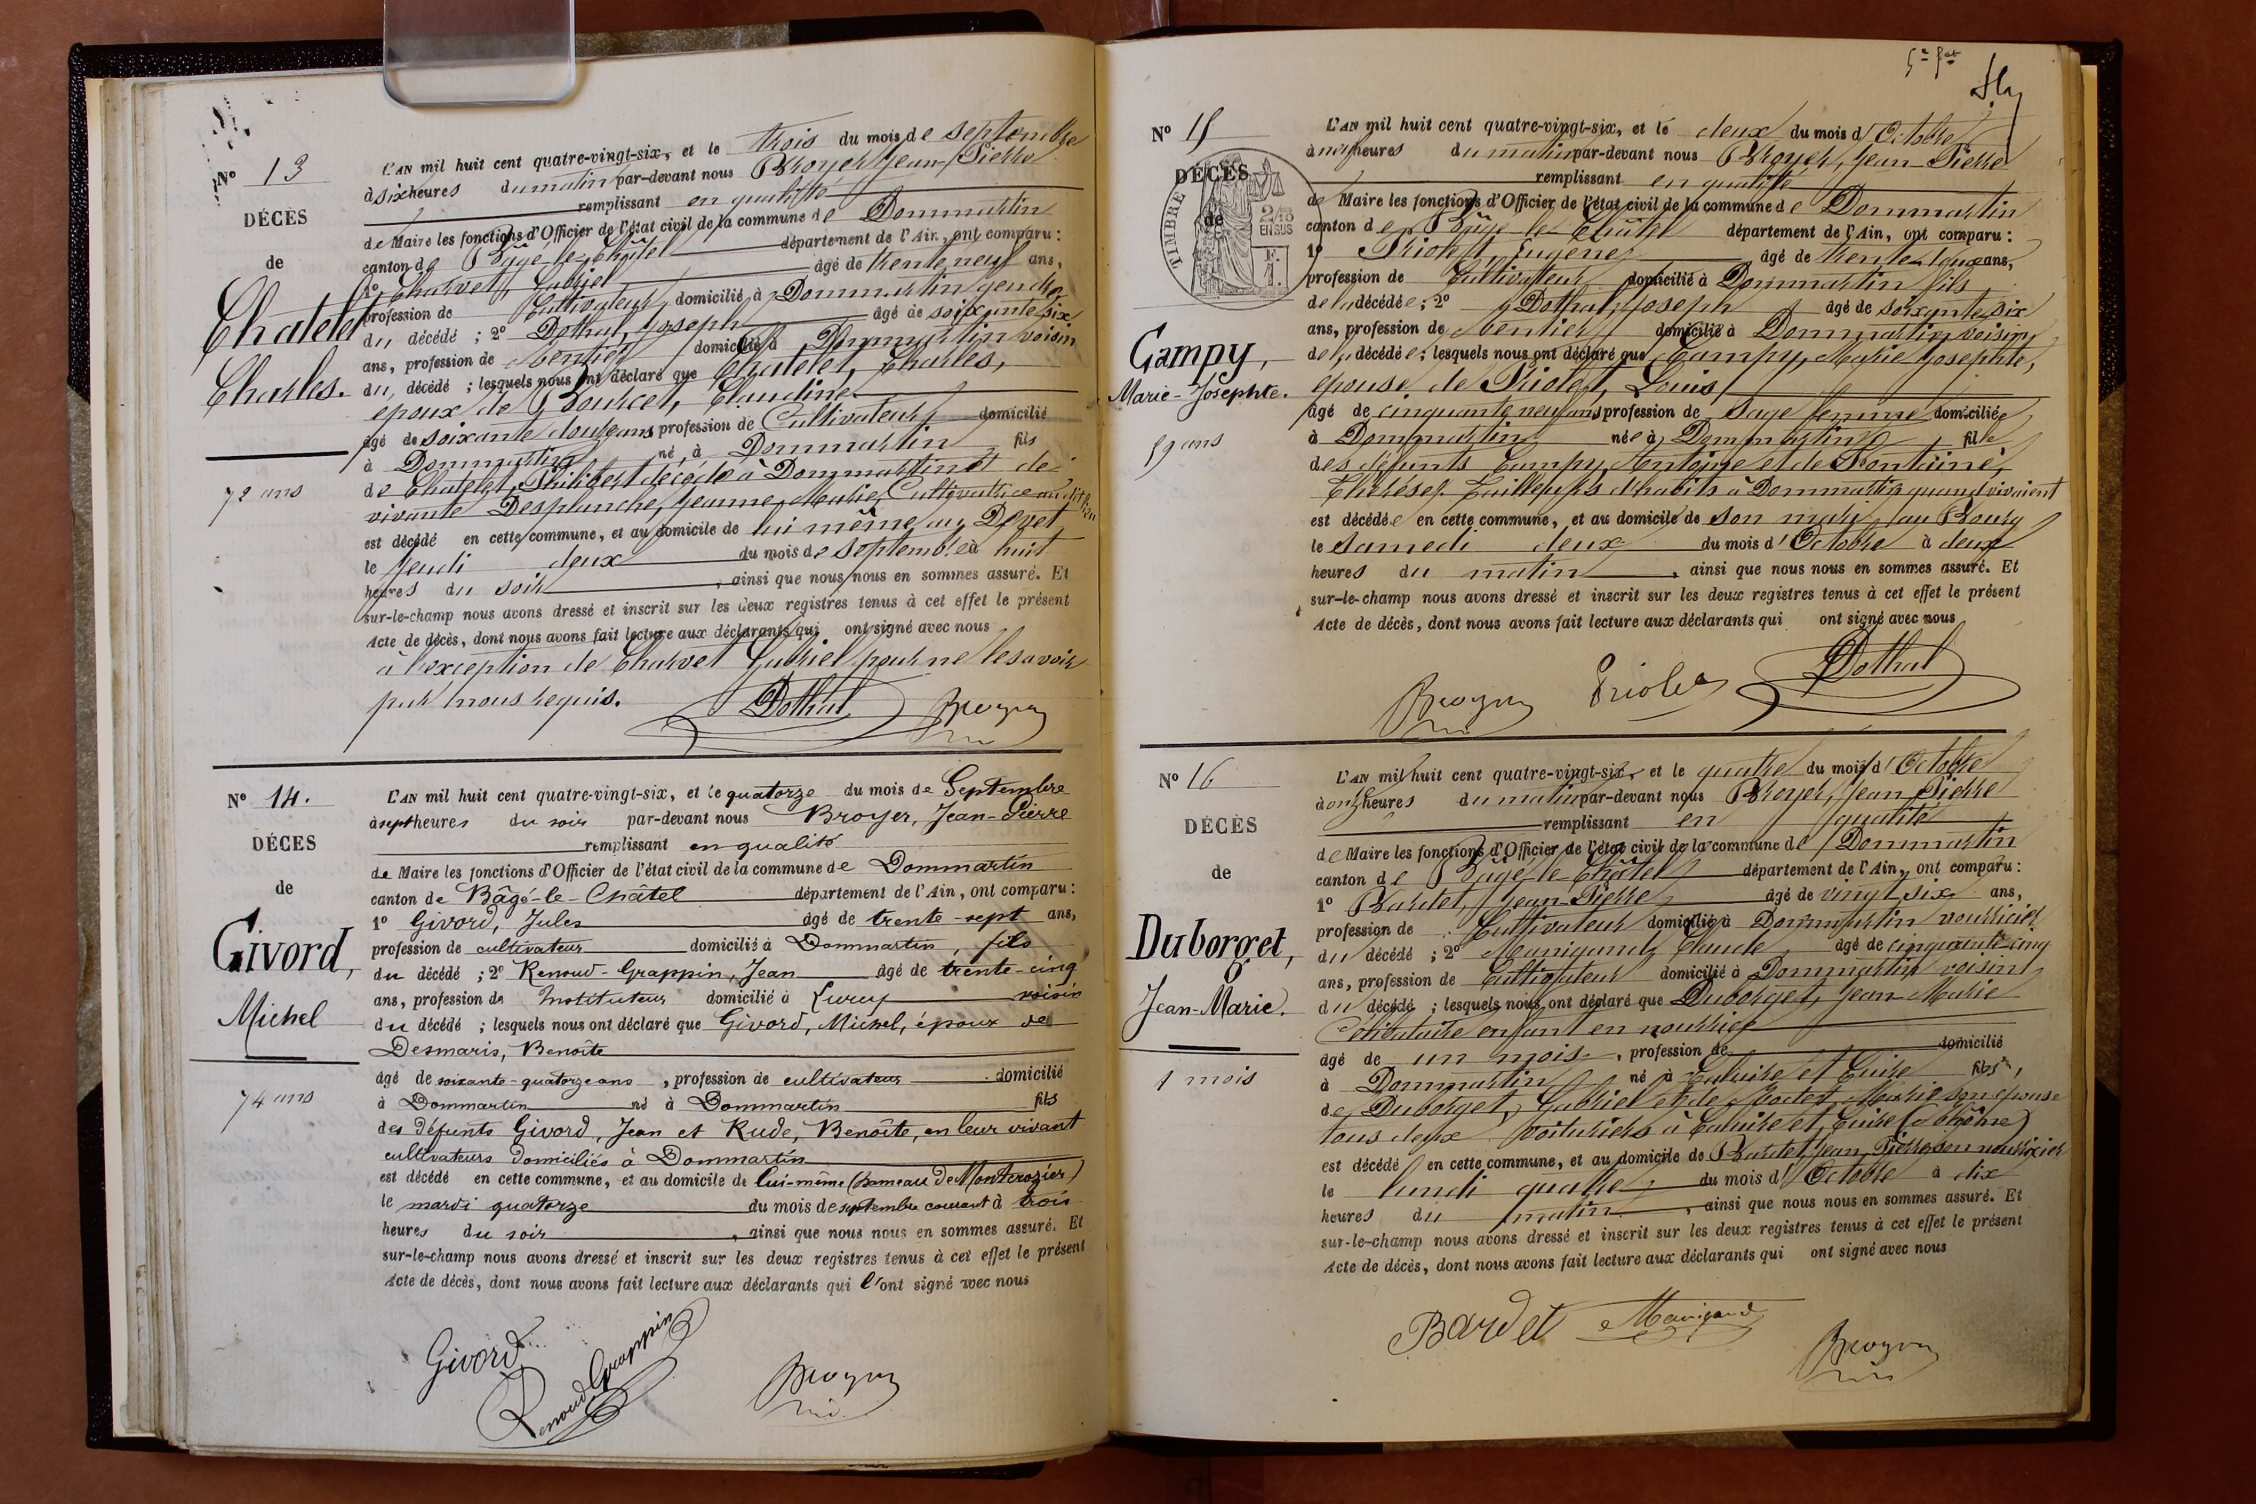 N° 13
DÉCÈS
de
Chatelet
Charles.
72 ans
L'AN mil huit cent quatre-vingt-six, et le trois du mois de septembre
à six heures du matin par-devant nous Broyer, Jean-Pierre
remplissant en qualité
de Maire les fonctions d'Officier de l'état civil de la commune de Dommartin
canton de Bâgé-le-Châtel département de l'Ain, ont comparu :
1° Charvet, Gabriel âgé de trente neuf ans,
profession de Cultivateur domicilié à Dommartin gendre
du décédé ; 2° Dothal, Joseph âgé de soixante six
ans, profession de Rentier domicilié à Dommartin voisin
du décédé ; lesquels nous ont déclaré que Chatelet, Charles,
époux de Bourcet, Claudine
âgé de soixante douze ans profession de Cultivateur domicilié
à Dommartin né à Dommartin fils
de Chatelet, Philibert décédé à Dommartin et de
vivante Desplanche, Jeanne-Marie, Cultivatrice au dit lieu
est décédé en cette commune, et au domicile de lui même au Devet
le Jeudi deux du mois de septembre à huit
heures du soir, ainsi que nous nous en sommes assuré. Et
sur-le-champ nous avons dressé et inscrit sur les deux registres tenus à cet effet le présent
Acte de décès, dont nous avons fait lecture aux déclarants qui ont signé avec nous
à l'exception de Charvet Gabriel pour ne le savoir
par nous requis.
Dothal Broyer
N° 14.
DÉCES
de
Givord,
Michel
74 ans
L'AN mil huit cent quatre-vingt-six, et le quatorze du mois de Septembre
à sept heures du soir par-devant nous Broyer, Jean-Pierre
remplissant en qualité
de Maire les fonctions d'Officier de l'état civil de la commune de Dommartin
canton de Bâgé-le-Châtel département de l'Ain, ont comparu :
1° Givord, Jules âgé de trente-sept ans,
profession de cultivateur domicilié à Dommartin, fils
du décédé ; 2° Renoud-Grappin, Jean âgé de trente-cinq
ans, profession de Instituteur domicilié à Lurcy voisin
du décédé ; lesquels nous ont déclaré que Givord, Michel, époux de
Desmaris, Benoîte
âgé de soixante-quatorze ans, profession de cultivateur domicilié
à Dommartin né à Dommartin fils
des défunts Givord, Jean et Rude, Benoîte, en leur vivant
cultivateurs domiciliés à Dommartin
est décédé en cette commune, et au domicile de lui-même (hameau de Montcrozier)
le mardi quatorze du mois de septembre courant à trois
heures du soir, ainsi que nous nous en sommes assuré. Et
sur-le-champ nous avons dressé et inscrit sur les deux registres tenus à cet effet le présent
Acte de décès, dont nous avons fait lecture aux déclarants qui l'ont signé avec nous
Givord
Renoud Grappin
Broyer
5e fet
N° 15
DÉCÈS
de
TIMBRE
2/10
EN SUS
Campy,
Marie-Josephte.
59 ans
L'AN mil huit cent quatre-vingt-six, et le deux du mois d'Octobre
à neuf heures du matin par-devant nous Broyer, Jean-Pierre
remplissant en qualité
de Maire les fonctions d'Officier de l'état civil de la commune de Dommartin
canton de Bâgé-le-Châtel département de l'Ain, ont comparu :
1° Priolet, Eugène âgé de trente deux ans,
profession de Cultivateur domicilié à Dommartin fils
de la décédée ; 2° Dothal, Joseph âgé de soixante six
ans, profession de Rentier domicilié à Dommartin voisin
de la décédée ; lesquels nous ont déclaré que Campy, Marie Josephte,
épouse de Priolet, Louis
âgé de cinquante neuf ans profession de Sage femme domiciliée
à Dommartin née à Dommartin fille
des défunts Campy, Antoine et de Fontaine,
Thérèse. Tailleurs d'habits à Dommartin quand vivaient
est décédée en cette commune, et au domicile de son mari au Bourg
le samedi deux du mois d'Octobre à deux
heures du matin, ainsi que nous nous en sommes assuré. Et
sur-le-champ nous avons dressé et inscrit sur les deux registres tenus à cet effet le présent
Acte de décès, dont nous avons fait lecture aux déclarants qui ont signé avec nous
Broyer Priolet Dothal
N° 16
DÉCÈS
de
Duborget,
Jean-Marie.
1 mois
L'AN mil huit cent quatre-vingt-six, et le quatre du mois d'Octobre
à onze heures du matin par-devant nous Broyer, Jean Pierre
remplissant en qualité
de Maire les fonctions d'Officier de l'état civil de la commune de Dommartin
canton de Bâgé-le-Châtel département de l'Ain, ont comparu :
1° Bardet, Jean-Pierre âgé de vingt six ans,
profession de Cultivateur domicilié à Dommartin nourricier
du décédé ; 2° Manigand, Claude âgé de cinquante cinq
ans, profession de Cultivateur domicilié à Dommartin voisin
du décédé ; lesquels nous ont déclaré que Duborget, Jean-Marie
Célibataire enfant en nourrice
âgé de un mois, profession de domicilié
à Dommartin né à Caluire et Cuire fils,
de Duborget, Gabriel et de Marie son épouse
tous deux voituriers à Caluire et Cuire (Rhône)
est décédé en cette commune, et au domicile de Bardet, Jean Pierre son nourricier
le lundi quatre du mois d'Octobre à dix
heures du matin, ainsi que nous nous en sommes assuré. Et
sur-le-champ nous avons dressé et inscrit sur les deux registres tenus à cet effet le présent
Acte de décès, dont nous avons fait lecture aux déclarants qui ont signé avec nous
Bardet Manigand
Broyer